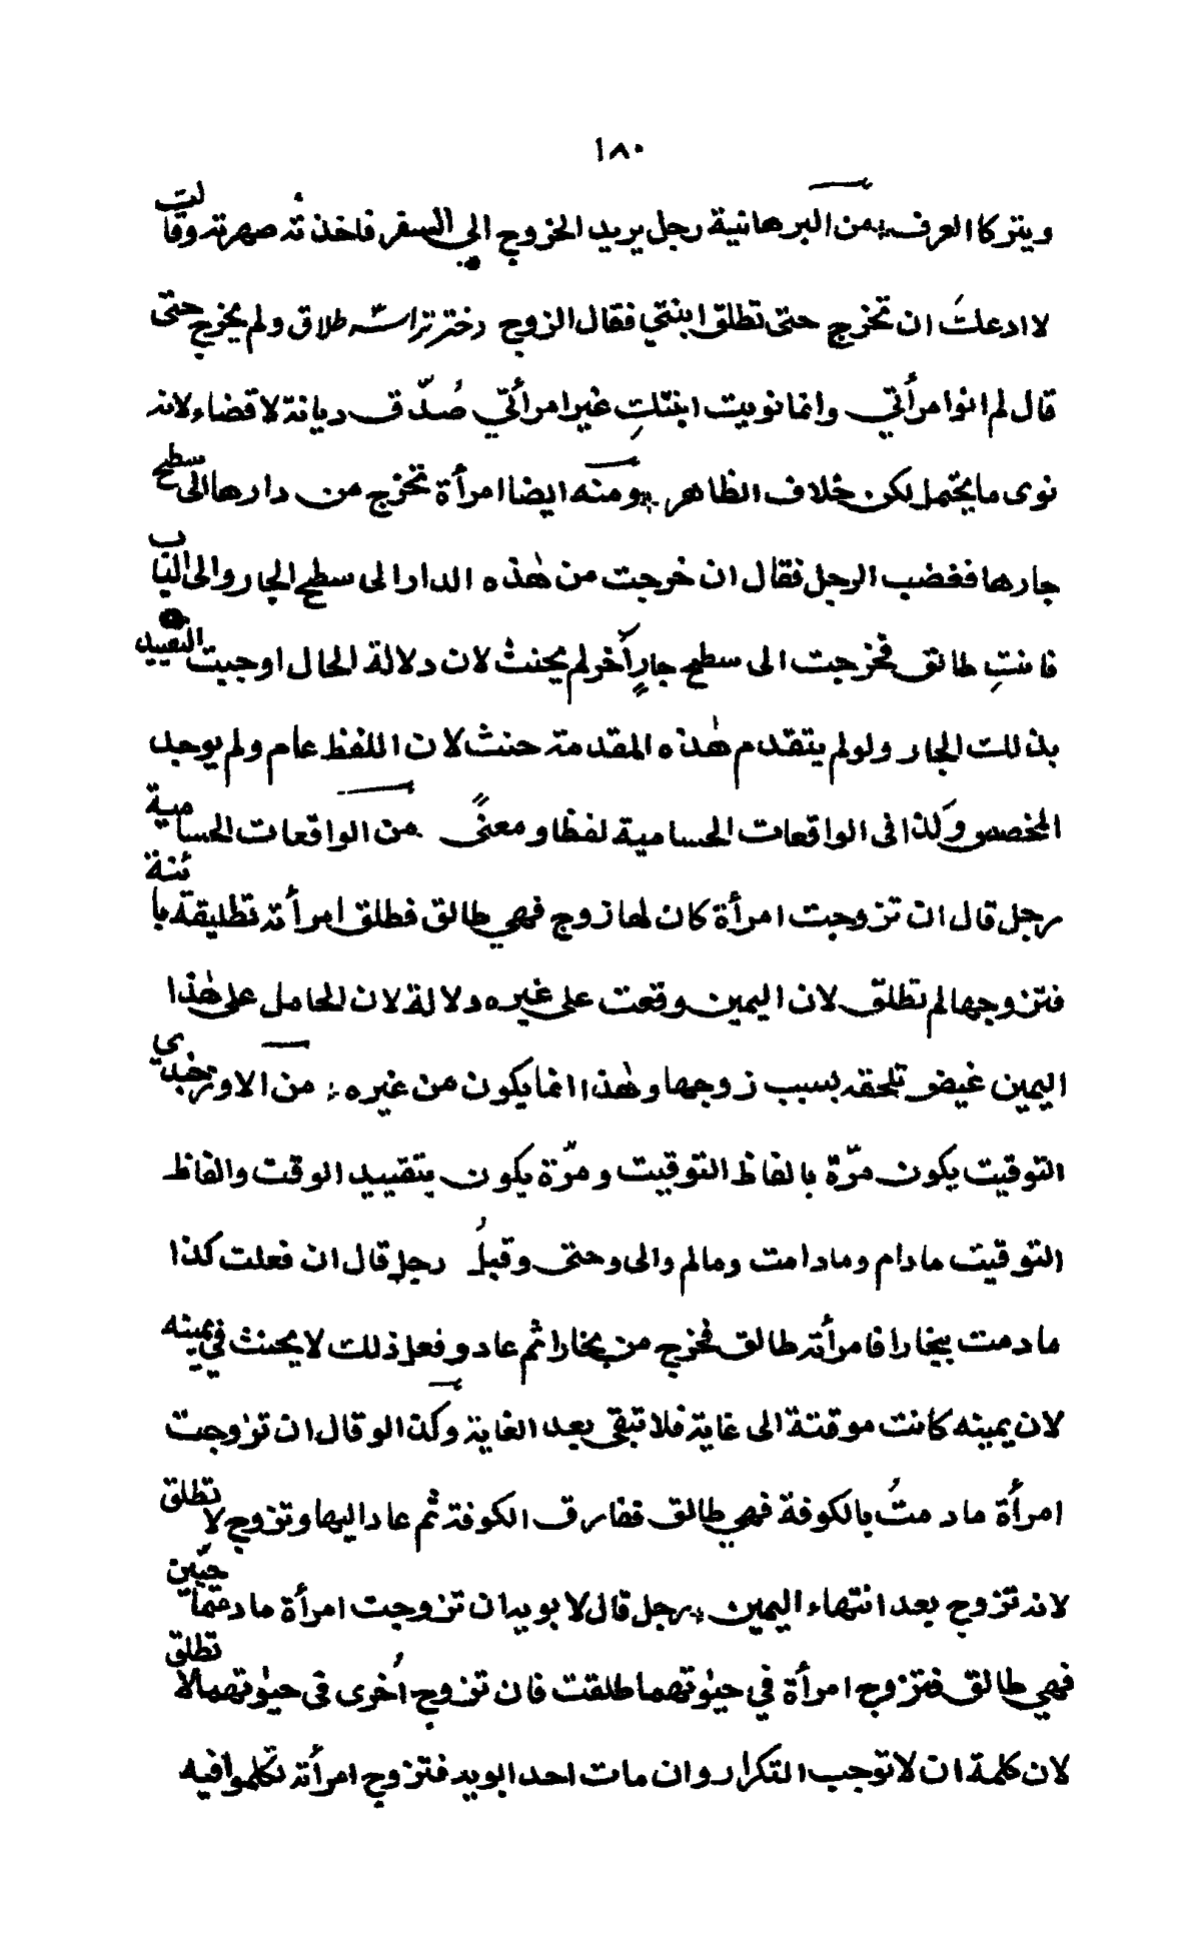 ١٨٠
ويتركا العرف ؞ من البرهانية رجل يريد الخروج الى السفر فاخذته صهرته وقالت
لا ادعك ان تخرج حتى تطلق ابنتي فقال الزوج دختر تراسه طلاق ولم يخرج حتى
قال لم انوا مرأتي وانما نويت ابنتكِ غير امرأتي صُدّق ديانة لا قضاء لانه
نوى ما يحتمل لكن خلاف الظاهر ؞ ومنه ايضا امرأة تخرج من دارها الى سطح
جارها فغضب الرجل فقال ان خرجت من هٰذه الدار الى سطح الجار والى الباب
فانتِ طالق فخرجت الى سطح جارٍ آخر لم يحنث لان دلالة الحال اوجبت التقييد
بذلك الجار ولو لم يتقدم هٰذه المقدمة حنث لان اللفظ عام ولم يوجد
المخصص وكذا فى الواقعات الحسامية لفظا ومعنًى من الواقعات الحسامية
رجل قال ان تزوجت امرأة كان لها زوج فهي طالق فطلق امرأته تطليقة بائنة
فتزوجها لم تطلق لان اليمين وقعت على غيره دلالة لان الحامل على هٰذا
اليمين غيض تلحقه بسبب زوجها وهٰذا انما يكون من غيره ؞ من الاوزجندي
التوقيت يكون مرّة بالفاظ التوقيت ومرّة يكون بتقييد الوقت والفاظ
التوقيت مادام ومادامت ومالم والى وحتى وقبلُ رجل قال ان فعلت كذا
ما دمت ببخارا فامرأته طالق فخرج من بخارا ثم عاد وفعل ذلك لا يحنث في يمينه
لان يمينه كانت موقتة الى غاية فلا تبقى بعد الغاية وكذا لو قال ان تزوجت
امرأة ما دمتُ بالكوفة فهي طالق ففارق الكوفة ثم عاد اليها وتزوج لا تطلق
لانه تزوج بعد انتهاء اليمين ؞ رجل قال لابويه ان تزوجت امرأة ما دمتما حيّين
فهي طالق فتزوج امرأة في حيٰوتهما طلقت فان تزوج اُخرى في حيٰوتهما لا تطلق
لان كلمة ان لا توجب التكرار وان مات احد ابويه فتزوج امرأته تكلموا فيه